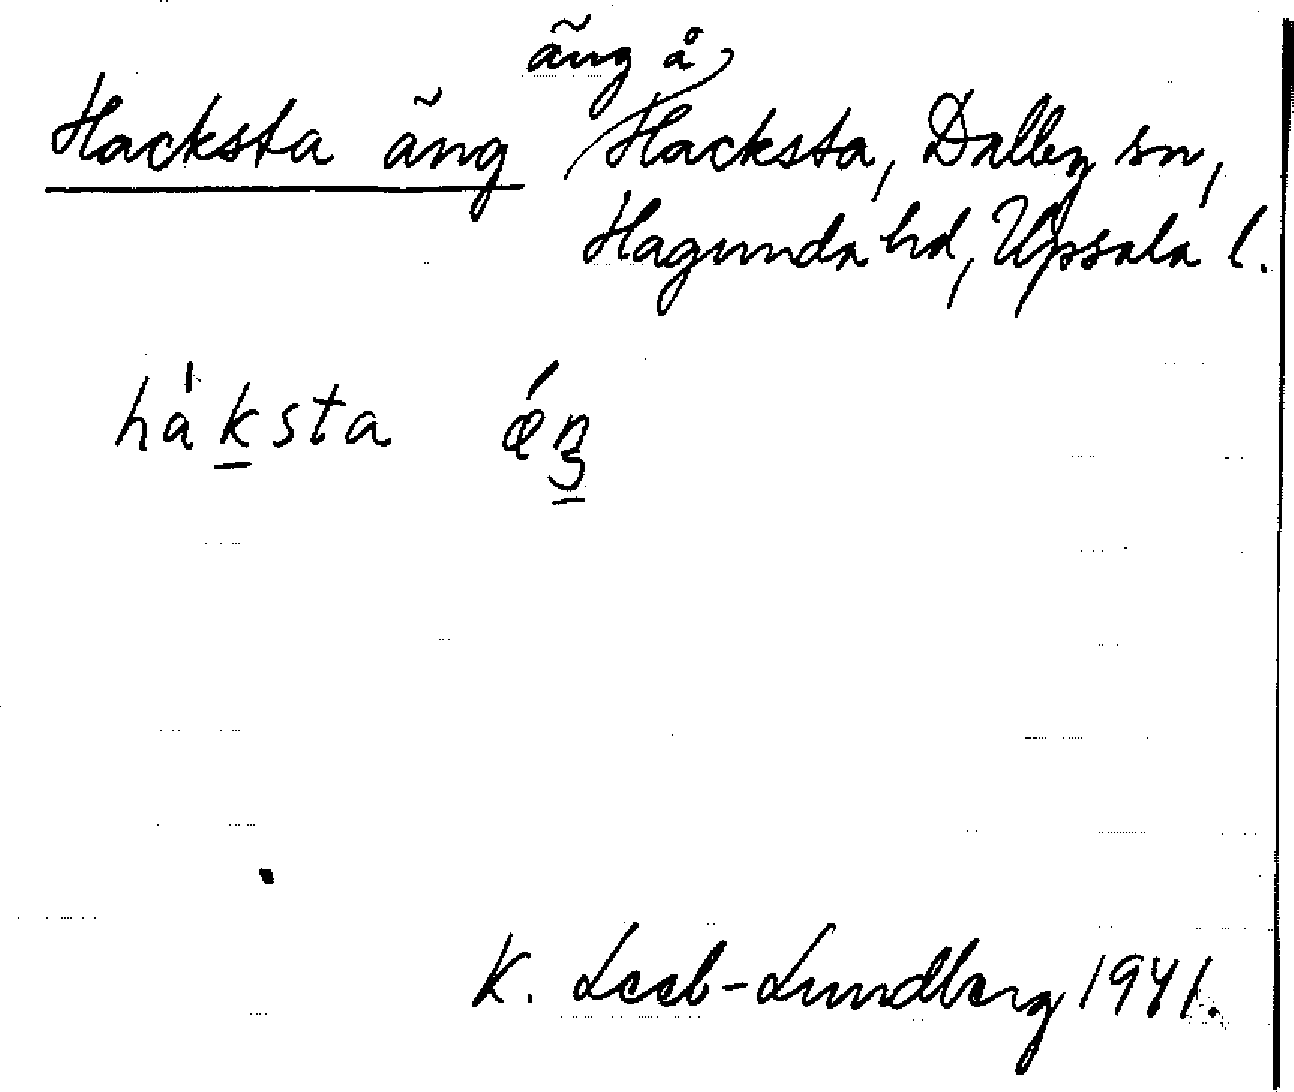 äng å
Hacksta äng Hacksta, Dalby sn,
Hagunda hd, Upsala l.
hàksta ǽŋ
K. Leeb-Lundberg 1941.